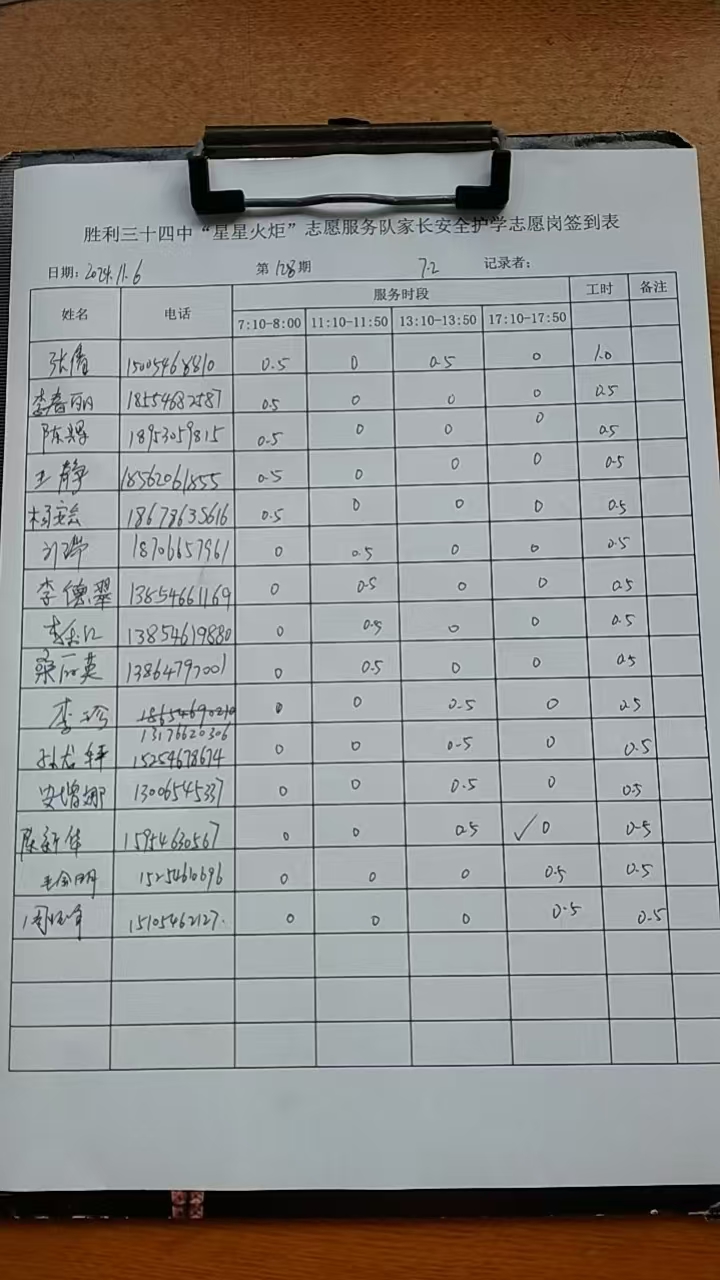 胜利三十四中“星星火炬”志愿服务队家长安全护学志愿岗签到表
日期: 2024.11.6 第128期 7.2 记录者:
姓名 电话 服务时段 工时 备注
7:10-8:00 11:10-11:50 13:10-13:50 17:10-17:50
张倩 15005468810 0.5 0 0.5 0 1.0
李春丽 18554682587 0.5 0 0 0 0.5
陈娟 18953059815 0.5 0 0 0 0.5
王静 18562061855 0.5 0 0 0 0.5
18678635616 0.5 0 0 0 0.5
刘瑞 18706657961 0 0.5 0 0 0.5
李德翠 13854661169 0 0.5 0 0 0.5
13854619880 0 0.5 0 0 0.5
桑丽英 13864797001 0 0.5 0 0 0.5
李珍 18654690210 0 0 0.5 0 0.5
13176620306
15254678674 0 0 0.5 0 0.5
安增娜 13006545337 0 0 0.5 0 0.5
陈新华 15954630567 0 0 0.5 ✓0 0.5
毛金明 15254610696 0 0 0 0.5 0.5
15105462127. 0 0 0 0.5 0.5